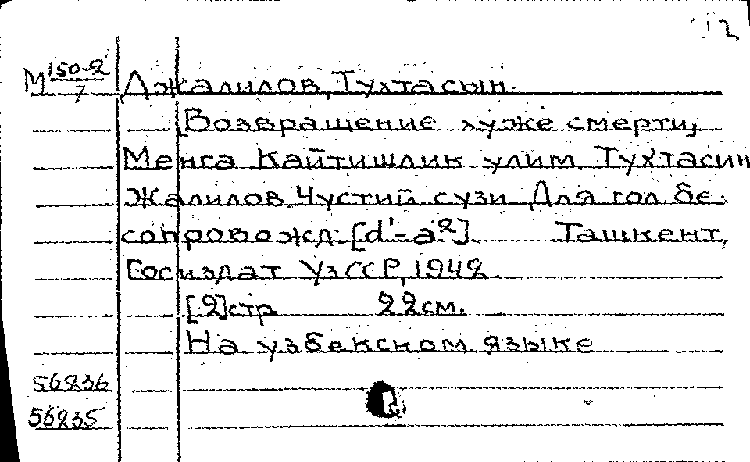 12
М 150-2/7 Джалилов, Тухтасын.
Возвращение хуже смерти,
Менга Кайтишлик улим Тухтасин
Жалилов Чустий сузи Для гол бе
сопровожд. [d'-a²]. Ташкент,
Госиздат УзССР, 1942
[2]стр 22см.
На узбекском языке
56236
56235